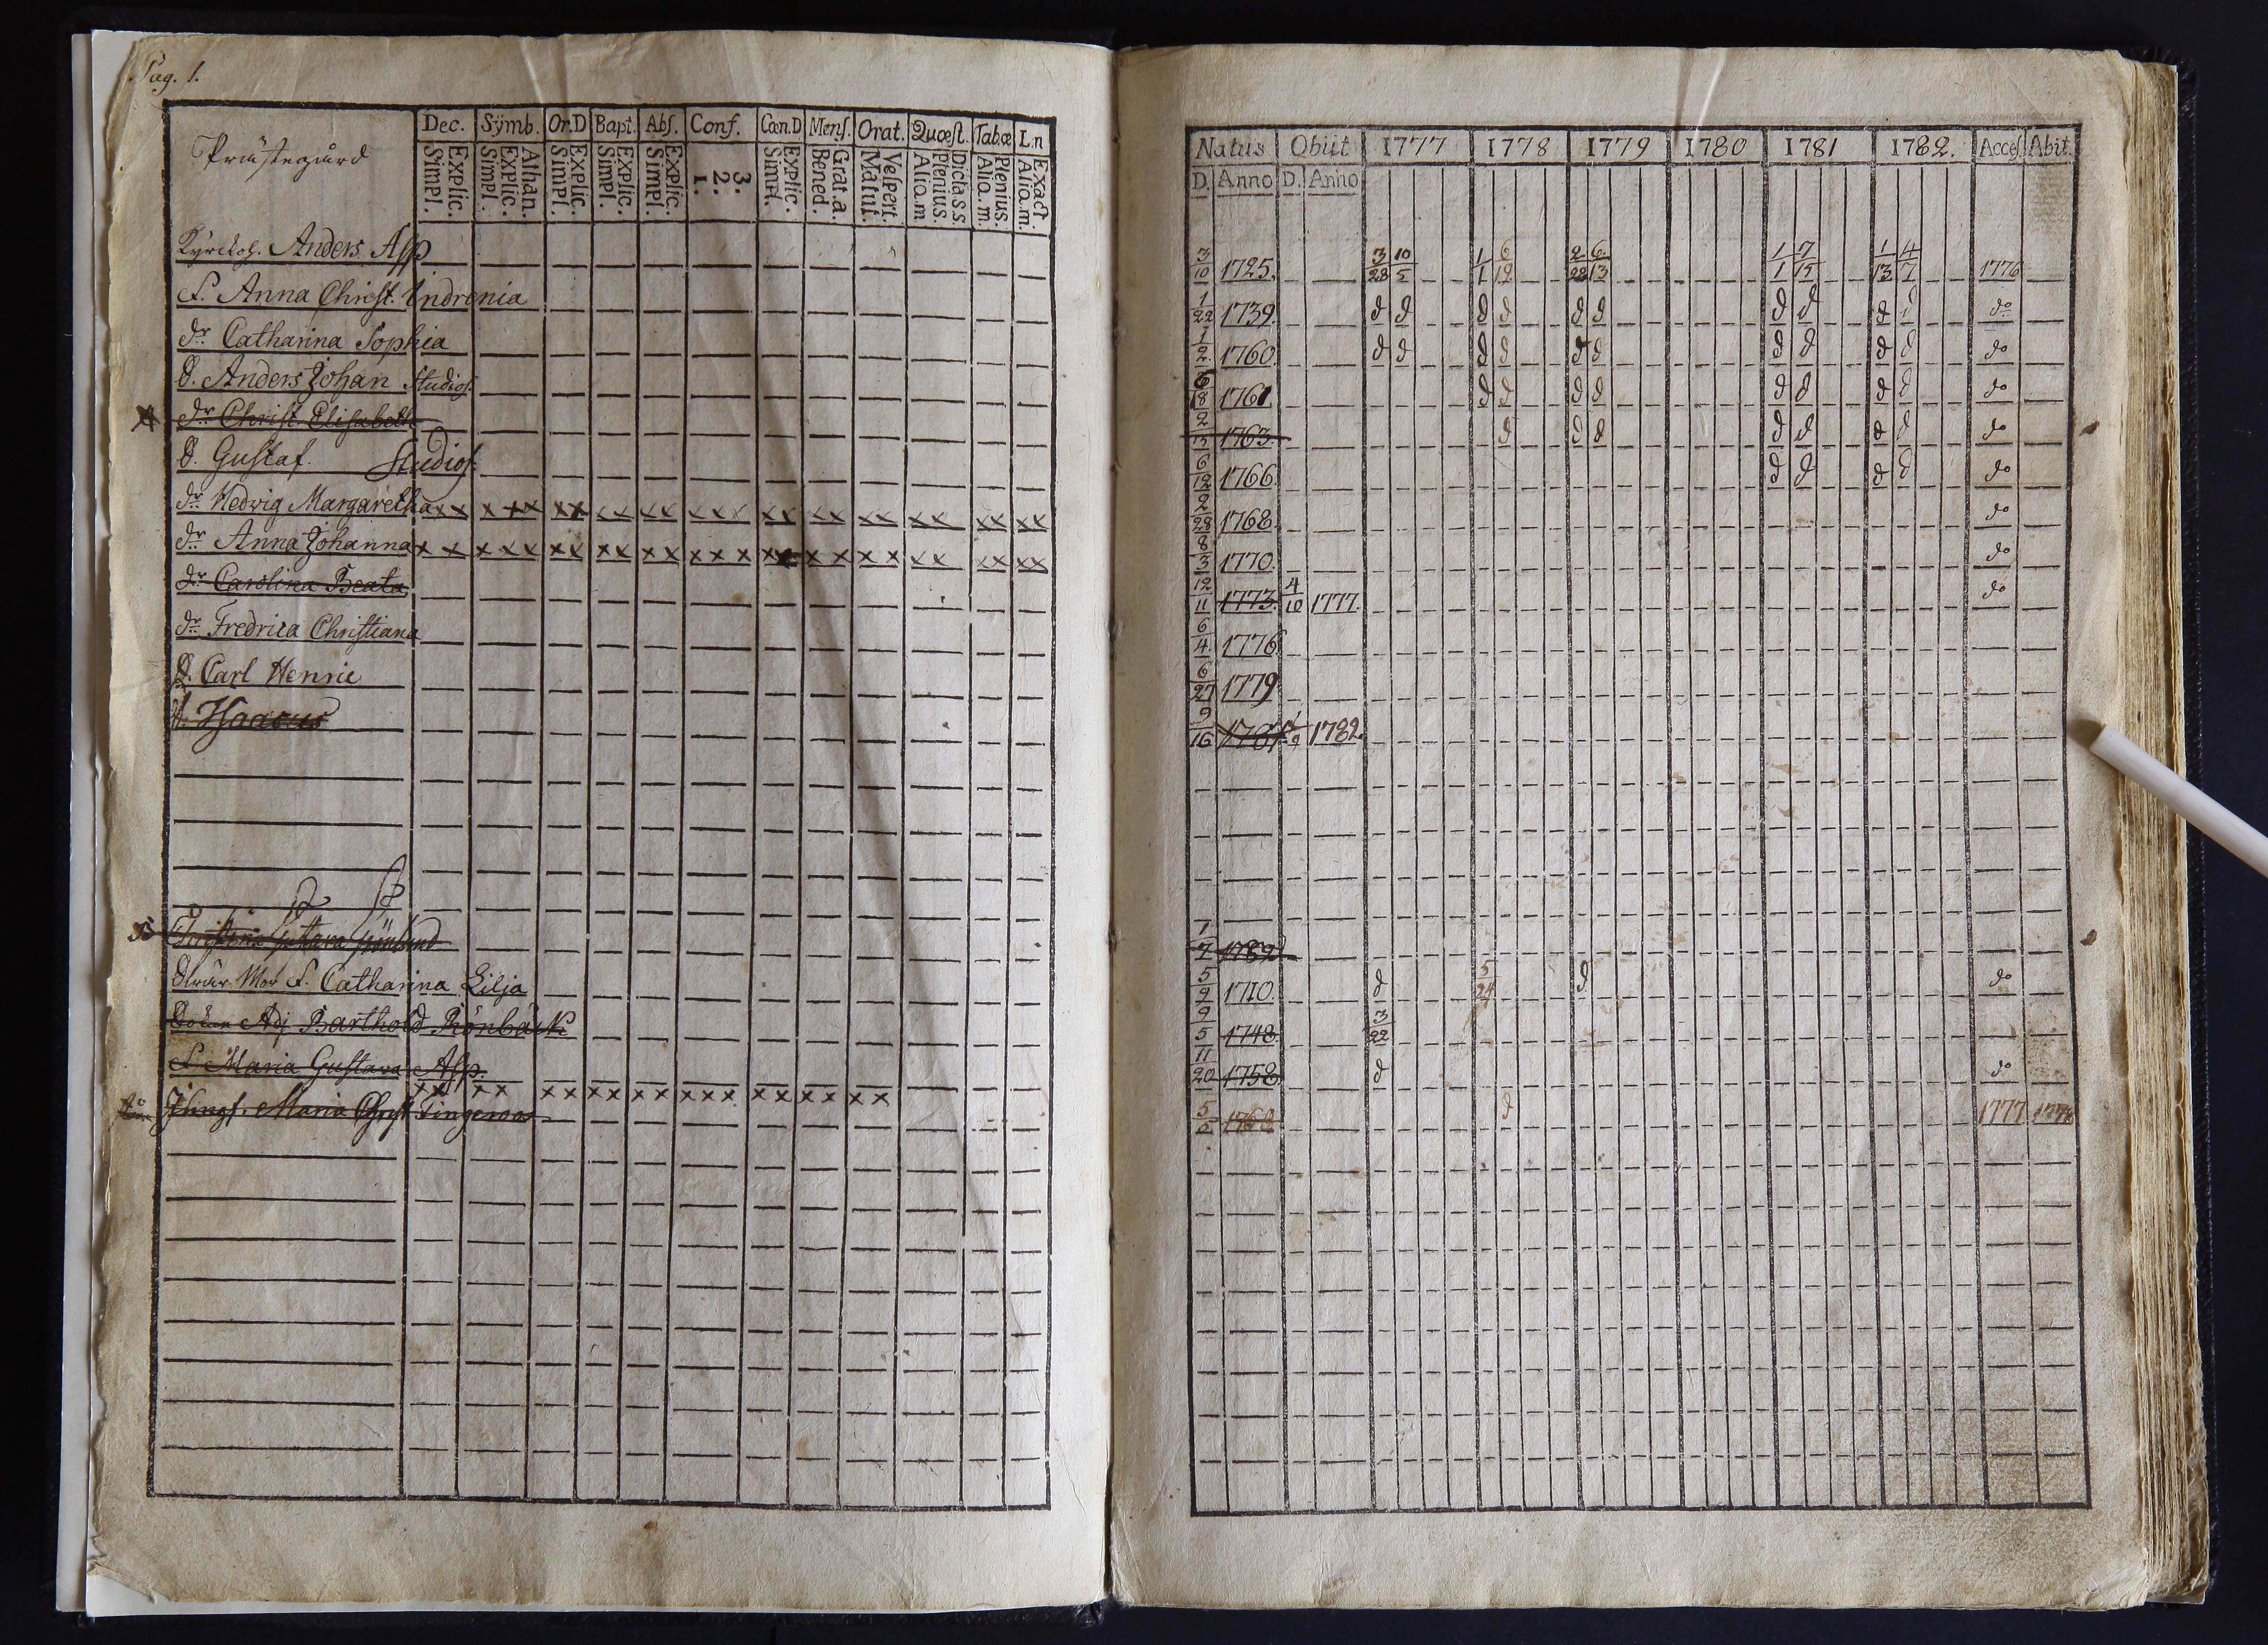 Pag. 1.
Prästegård
Dec. Sÿmb. Or.D Bapt. Abs. Conf. Cœn.D Mens. Orat. Quœst. Tabœ L.n
Simpl. Explic. Simpl. Explic. Athan. Simpl. Explic. Simpl. Explic. Simpl. Explic. 1. 2. 3. Simpl. Explic. Bened. Grat.a. Matut. Vespert. Alio.m. Plenius. Dicta.s.s. Alia.m. Plenius. Alia.m. Exact.
Kyrckoh. Anders Asp
F. Anna Christ. Indrenia
dr Catharina Sophia
S. Anders Johan Studios.
dr Christ. Elisabeth
S. Gustaf. Studios.
dr Hedvig Margaretha x x x x x x x x x x x x x x x x x x x x x x x x x x
dr Anna Johanna x x x x x x x x x x x x x x x x x x x x x x x x x
dr Carolina Beata
dr Fredrica Christiana
S. Carl Henric
S. Isaacus
Swär Mor F. Catharina Lilja
Adj Barthold Rönbäck
F Maria Gustava Asp.
x x x x x x x x x x x x x x x x x x x
Maria Christ
Natus Obiit 1777 1778 1779 1780 1781 1782. Acces. Abit.
D. Anno D. Anno
3/10 1725. 3/28 10/5 1/1 6/12 2/28 6/13 1/1 7/15 1/13 4/7 1776
1/22 1739. d d d d d d d d d d do
1/2 1760. d d d d d d d d d d do
6/8 1761 d d d d d d d d do
2/15 1763. d d d d d d d do
6/12 1766. d d d d do
2/28 1768. do
8/3 1770. do
12/11 1773. 4/10 1777. do
6/4 1776
6/27 1779
9/16 1781 1/9 1782.
7/7 1782
5/2 1710. d 5/24 d do
9/5 1748. 3/22
11/20 1758. d do
5 1762 d 1777 1778